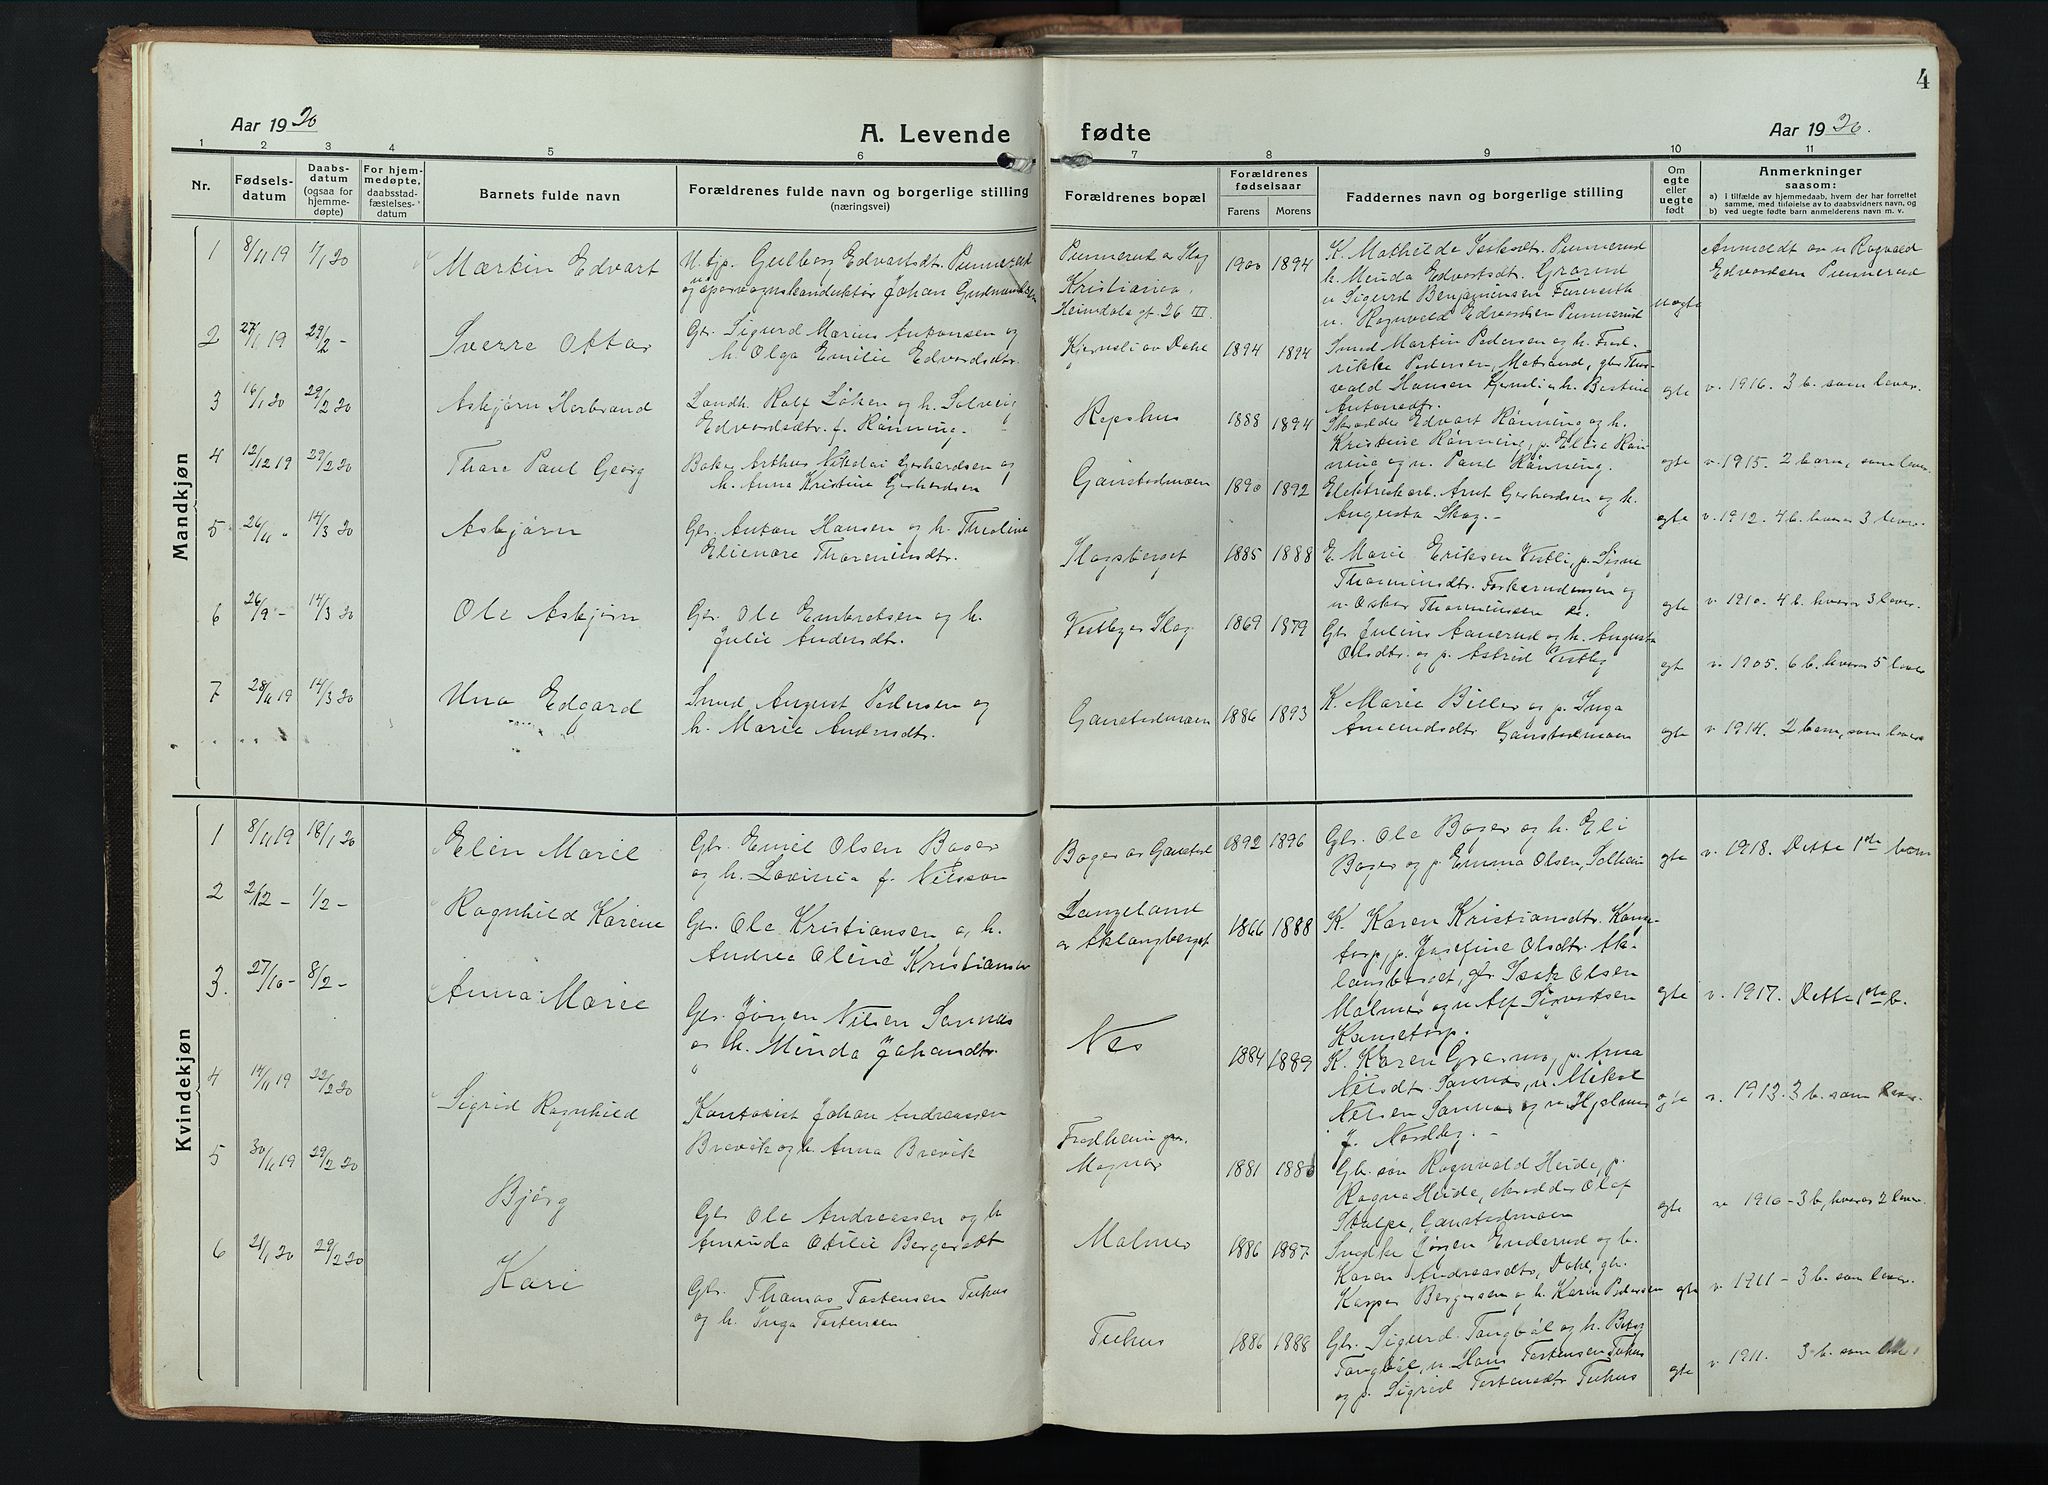 4
Aar 1920
A. Levende
fødte
Aar 1920.
1 2 3 4 5 6 7 8 9 10 11
Nr.
Fødsels-
datum
Daabs-
datum
(ogsaa for
hjemme-
døpte)
For hjem-
medøpte,
daabsstad-
fæstelses-
datum
Barnets fulde navn
Forældrenes fulde navn og borgerlige stilling
(næringsvei)
Forældrenes bopæl
Forældrenes
fødselsaar
Farens Morens
Faddernes navn og borgerlige stilling
Om
egte
eller
uegte
født
Anmerkninger
saasom:
a) i tilfælde av hjemmedaab, hvem der har forrettet
samme, med tilføielse av to daabsvidners navn, og
b) ved uegte fødte barn anmelderens navn m. v.
Mandkjøn
1 8/11 19 1/1 20
Martin Edvart
U. tjp. Gulborg Edvartsdt. Punnerud
og sporvognskonduktør Johan Gudmundsen
Punnerud av Skog
Kristiania,
Heimdals gt. 26 III.
1900 1894
K. Mathilde Isaksdt. Punnerud
h. Minda Edvartsdt. Grarud
u. Sigurd Benjaminsen
u. Rognvald Edvardsen Punnerud
uegte
Anmeldt av u. Rogvald
Edvardsen Punnerud
2 27/1 19 29/2 -
Sverre Ottar
Gbr. Sigurd Marius Antonsen og
h. Olga Emilie Edvardsdtr.
Kjernsli av Dahl
1894 1894
Smed Martin Pedersen og h. Fred-
rikke Pedersen, Matrand, gbr. Thor-
vald Hansen Kjernsli og h. Bestine
Antonsdtr.
egte
v. 1916. 3 b. som lever.
3 16/1 20 29/2 20
Asbjørn Herbrand
Landh. Rolf Løken og h. Solveig
Edvardsdtr. f. Rønning.
Repshus
1888 1894
Skrædder Edvart Rønning og h.
Kristine Rønning, p. Elise Røn-
ning og u. Paul Rønning.
egte
v. 1915. 2 barn, som lever.
4 12/12 19 29/2 20
Thore Paul Georg
Baker Arthur Nikolai Gerhardsen og
h. Anna Kristine Gerhardsen
Gaustadmoen
1890 1892
Elektriskarb. Arnt Gerhardsen og h.
Augusta Skog. -
egte
v. 1912. 4 b. hvorav 3 lever.
5 26/11 " 14/3 20
Asbjørn
Gbr. Anton Hansen og h. Theoline
Elienore Thoreniusdtr.
Skogsberget
1885 1888
E. Marie Eriksen Vestli, p. Signe
Thoreniusdtr.
u. Oskar Thoreniussen
egte
v. 1910. 4 b. hvorav 3 lever.
6 26/9 - 14/3 20
Ole Asbjørn
Gbr. Ole Embretsen og h.
Julie Andersdt.
Vestby av Skog
1869 1879
Gbr Julius Aanerud og h. Augusta
Olsdtr. og p. Astrid Vestby
egte
v. 1905. 6 b. hvorav 5 lever
7 28/11 19 14/3 20
Uno Edgard
Smed August Pedersen og
h. Marie Andersdtr.
Gaustadmoen
1886 1893
K. Marie Biller og p. Inga
Amundsdtr Gaustadmoen
egte
v. 1914. 2 barn, som lever
Kvindekjøn
1 8/11 19 18/1 20
Elin Marie
Gbr. Emil Olsen Boger
og h. Lovinia f. Nilsson
Boger av Gaustad
1892 1896
Gbr. Ole Boger og h. Eli
Boger og p. Emma Olsen, Solheim
egte
v. 1918. Dette 1ste barn
2 2/12 - 1/2 -
Ragnhild Karene
Gbr. Ole Kristiansen og h.
Andrea Oline Kristiansdtr
Langeland
av Aklangberget
1866 1888
K. Karen Kristiansdtr. Kanse-
torp, p. Josefine Olsdtr. Ak-
langberget, gbr. Isak Olsen
Malmer og u. Alf Sigvartsen
Kansetorp.
egte
v. 1917. Dette 1ste b.
3. 27/10 - 8/2 -
Anna Marie
Gbr. Jørgen Nilsen Sonnæs
og h. Minda Johansdtr.
Nes
1884 1889
K. Karen Grasmo, p. Anna
Nilsdt. Sonnæs, u. Mikal
Nilsen Sonnæs og u. Hjalmar
J. Nordby. -
egte
v. 1913. 3 b. som lever.
4 14/11 19 22/2 20
Sigrid Ragnhild
Kontorist Johan Andreassen
Brevik og h. Anna Brevik
Fredheim
Magnor
1881 1886
Gb. søn Rognvald Heide, p.
Ragna Heide, skrædder Olaf
Stolpe, Gaustadmoen
egte
v. 1910 - 3 b, hvorav 2 lever.
5 30/11 19 29/2 20
Bjørg
Gbr Ole Andreassen og h
Amanda Otilie Bergersdt
Malmer
1886 1887
Snedker Jørgen Enderud og h.
Karen Andreasdtr, Dahl, gbr.
Kasper Bergersen og h. Karen Pedersen
egte
v. 1911 - 3 b. som lever.
6 21/1 20 29/2 20
Kari
Gbr. Thomas Tostensen Tuhus
og h. Inga Tostensen
Tuhus
1886 1888
Gbr. Sigurd Tangbøl og h. Berta
Tangbøl, u. Hans Tostensen Tuhus
og p. Sigrid Tostensdtr Tuhus
egte
v. 1911. 3 b. som lever